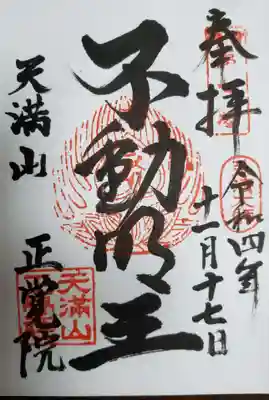 奉拝
令和四年
十一月十七日
不動明王
天満山
正覚院
天満山